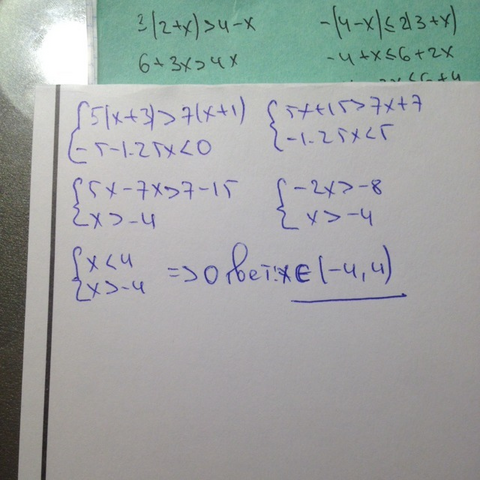 3(2+x)>4-x
-(4-x)≤2(3+x)
6+3x>4x
-4+x≤6+2x
{5(x+3)>7(x+1)
{5x+15>7x+7
-5-1.25x<0
-1.25x<5
{5x-7x>7-15
{-2x>-8
x>-4
x>-4
{x<4
x>-4
=> Ответ: x∈(-4,4)